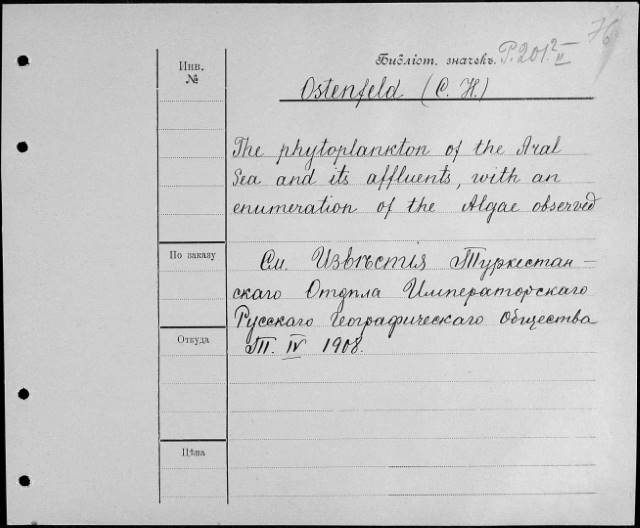 76
Инв.
№
Библіот. значекъ. P.201 2/II
Ostenfeld (C. H.)
The phytoplankton of the Aral
Sea and its affluents, with an
enumeration of the Algae observed
По заказу
См. Извѣстія Туркестан-
скаго Отдѣла Императорскаго
Русскаго Географическаго Общества
Откуда
Т. IV 1908.
Цѣна